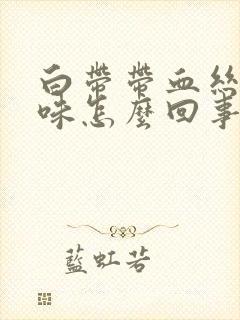 白帶帶血絲
味怎麼回事
藍虹若